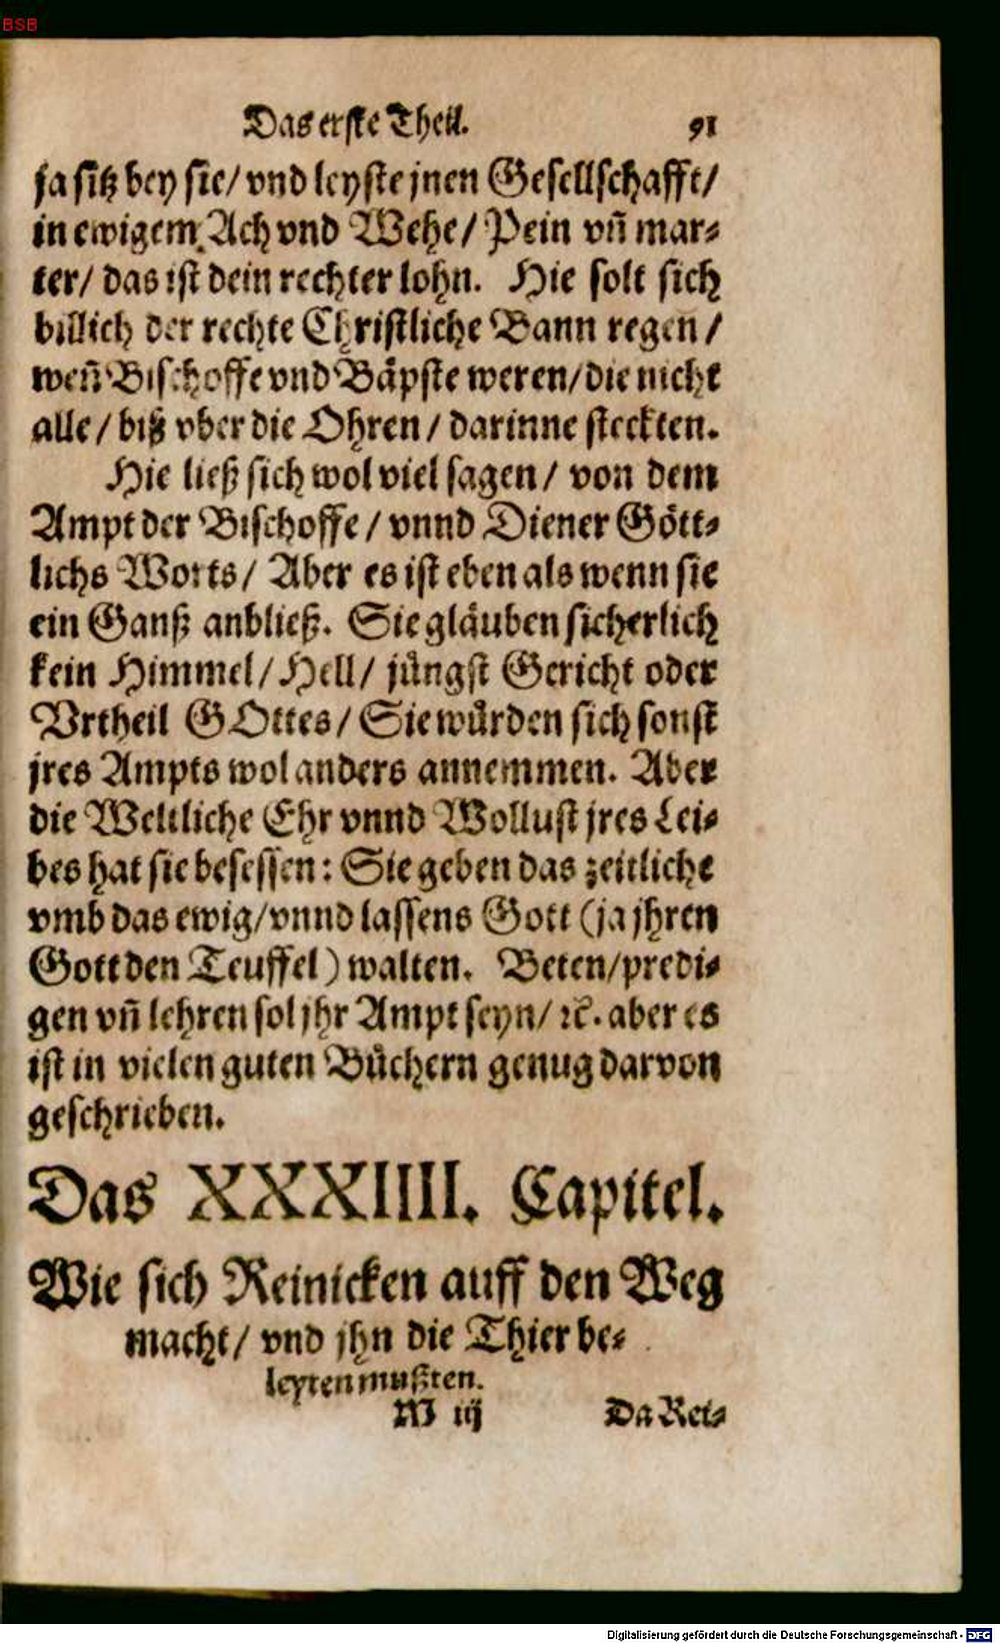 BSB
Das erste Theil. 91
ja sitz bey sie/ vnd leyste jnen Gesellschafft/
in ewigem Ach vnd Wehe/ Pein vñ mar-
ter/ das ist dein rechter lohn. Hie solt sich
billich der rechte Christliche Bann regen/
weñ Bischoffe vnd Bäpste weren/ die nicht
alle/ biß vber die Ohren/ darinne steckten.
Hie ließ sich wol viel sagen/ von dem
Ampt der Bischoffe/ vnnd Diener Gött-
lichs Worts/ Aber es ist eben als wenn sie
ein Ganß anbließ. Sie gläuben sicherlich
kein Himmel/ Hell/ jüngst Gericht oder
Vrtheil GOttes/ Sie würden sich sonst
jres Ampts wol anders annemmen. Aber
die Weltliche Ehr vnnd Wollust jres Lei-
bes hat sie besessen: Sie geben das zeitliche
vmb das ewig/ vnnd lassens Gott (ja jhren
Gott den Teuffel) walten. Beten/ predi-
gen vñ lehren sol jhr Ampt seyn/ ꝛc. aber es
ist in vielen guten Büchern genug darvon
geschrieben.
Das XXXIIII. Capitel.
Wie sich Reinicken auff den Weg
macht/ vnd jhn die Thier be-
leyten mußten.
M iij Da Rei-
Digitalisierung gefördert durch die Deutsche Forschungsgemeinschaft - DFG